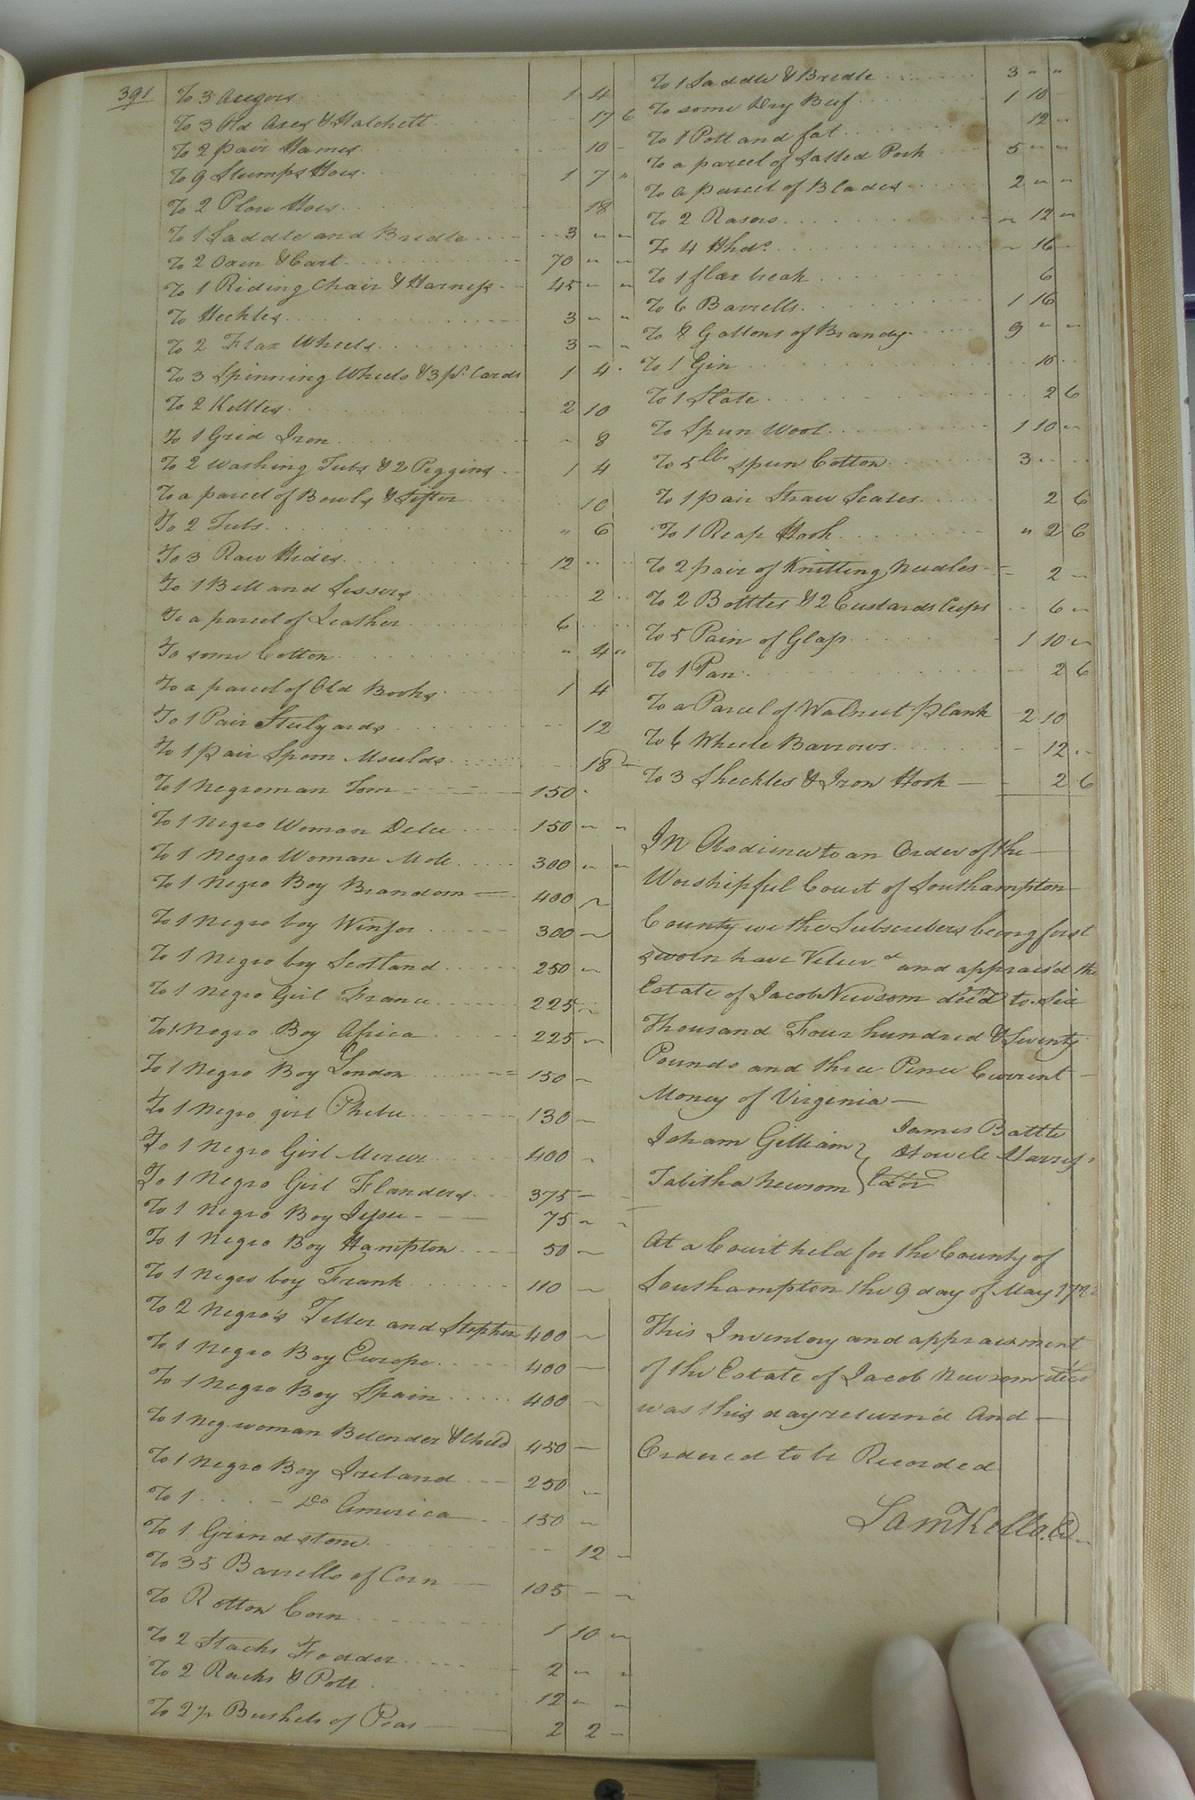 391
To 3 Augers 1 4
To 3 Old Axes & Hatchett 17 6
To 2 pair Hames 10 -
To 9 Stumps Hoes 1 7 "
To 2 Plow Hoes 18
To 1 Saddle and Bridle 3 " "
To 2 Oxen & Cart 70 " "
To 1 Riding Chair & Harness 45 " "
To Heckles 3 " "
To 2 Flax Wheels 3 - "
To 3 Spinning Wheels & 3 pr. Cards 1 4
To 2 Kettles 2 10
To 1 Grid Iron - 8
To 2 Washing Tubs & 2 Piggins 1 4
To a parcel of Bowls & Sifter 10
To 2 Tubs " 6
To 3 Raw Hides 12
To 1 Bell and Sissors 2
To a parcel of Leather 6
To some Cotton " 4 "
To a parcel of Old Books 1 4
To 1 Pair Stulyards 12
To 1 pair Spoon Moulds 18
To 1 Negroman Tom 150
To 1 Negro Woman Delce 150 " "
To 1 Negro Woman Moll 300 " "
To 1 Negro Boy Brandom 400 "
To 1 Negro boy Winsor 300 -
To 1 Negro boy Scotland 250 "
To 1 Negro Girl France 225 "
To 1 Negro Boy Africa 225 -
To 1 Negro Boy London 150 -
To 1 Negro girl Phebe 130 -
To 1 Negro Girl Mercer 400 -
To 1 Negro Girl Flanders 375 -
To 1 Negro Boy Jesse 75 " "
To 1 Negro Boy Hampton 50 -
To 1 Negro boy Frank 110 -
To 2 Negro's Teller and Stephen 400 -
To 1 Negro Boy Europe 400 -
To 1 Negro Boy Spain 400 -
To 1 Neg. woman Belender & Child 450 -
To 1 Negro Boy Ireland 250 "
To 1 - Do America 150 "
To 1 Grindstone 12 -
To 35 Barrells of Corn 105 - "
To Rotton Corn 1 10 "
To 2 Stacks Fodder 2 " "
To 2 Racks & Pott 12 " "
To 2 Bushels of Peas 2 2 -
To 1 Saddle & Bridle 3 " "
To some Dry Beef 1 10 -
To 1 Pott and fat 12 "
To a parcel of Salted Pork 5 " "
To a parcel of Blades 2 " "
To 2 Rasors " 12 "
To 4 Hhds 16 -
To 1 flax break 6
To 6 Barrells 1 16
To 8 Gallons of Brandy 9 " "
To 1 Gin 15
To 1 Slate 2 6
To Spun Wool 1 10 "
To 5 lb spun Cotton 3
To 1 pair Straw Scales 2 6
To 1 Reap Hook " 2 6
To 2 pair of Knitting Needles 2 -
To 2 Bottles & 2 Custards Cups 6 "
To 5 Pain of Glass 1 10 "
To 1 Pan 2 6
To a Parcel of Walnut plank 2 10
To 6 Wheele Barrows 12
To 3 Sheckles & Iron Hook 2 6
In Obedience to an Order of the
Worshipful Court of Southampton
County we the Subscribers being first
sworn have Valued and apprais'd the
Estate of Jacob Newsom dec'd to Six
Thousand Four hundred & Seventy
Pounds and three Pence Current
Money of Virginia
James Battle
Isham Gilliam Howell Harris
Tabitha Newsom Extor
At a Court held for the County of
Southampton the 9 day of May
This Inventory and appraisment
of the Estate of Jacob Newsom decd
was this day return'd And
Ordered to be Recorded
Sam Kello Cl.